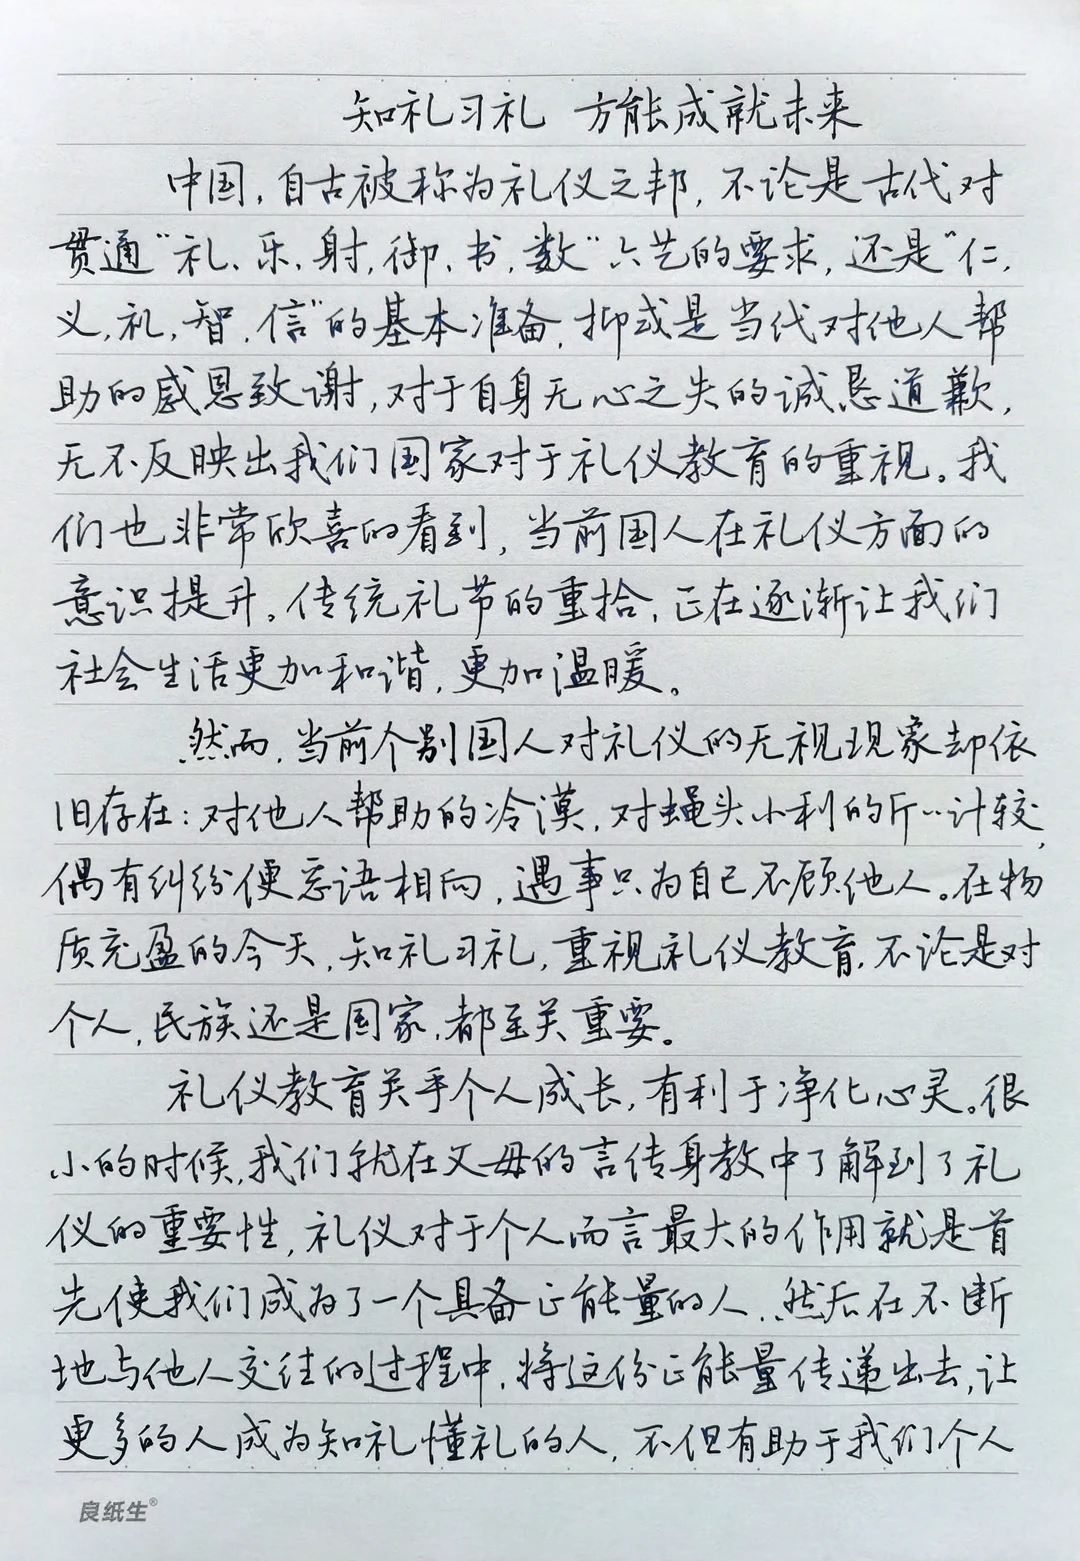 知礼习礼 方能成就未来
中国,自古被称为礼仪之邦,不论是古代对
贯通“礼、乐、射,御、书,数”六艺的要求,还是“仁,
义,礼,智,信”的基本准备,抑或是当代对他人帮
助的感恩致谢,对于自身无心之失的诚恳道歉,
无不反映出我们国家对于礼仪教育的重视。我
们也非常欣喜的看到,当前国人在礼仪方面的
意识提升。传统礼节的重拾,正在逐渐让我们
社会生活更加和谐,更加温暖。
然而,当前个别国人对礼仪的无视现象却依
旧存在:对他人帮助的冷漠,对蝇头小利的斤〃计较,
偶有纠纷便恶语相向,遇事只为自己不顾他人。在物
质充盈的今天,知礼习礼,重视礼仪教育,不论是对
个人,民族还是国家,都至关重要。
礼仪教育关乎个人成长,有利于净化心灵。很
小的时候,我们就在父母的言传身教中了解到了礼
仪的重要性,礼仪对于个人而言最大的作用就是首
先使我们成为了一个具备正能量的人,然后在不断
地与他人交往的过程中,将这份正能量传递出去,让
更多的人成为知礼懂礼的人,不但有助于我们个人
良纸生®